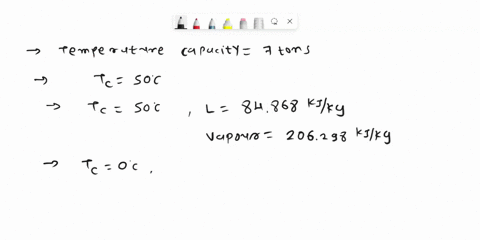 → Temperature capacity = 7 tons
→ Tc = 50°C
→ Tc = 50°C , L = 84.868 KJ/Kg
Vapour = 206.298 KJ/Kg
→ Tc = 0°C ,